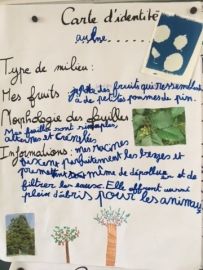 Carte d'identité
aulne
Type de milieu :
Mes fruits porte des fruits qui ressemblent
à de petites pommes de pin.
Morphologie des feuilles
Mes feuilles sont simples,
alternes et crénelées
Informations : mes racines
fixent parfaitement les berges et
permettent même de dépolluer et de
filtrer les eaux. Elle offrent aussi
plein d'abris pour les animaux